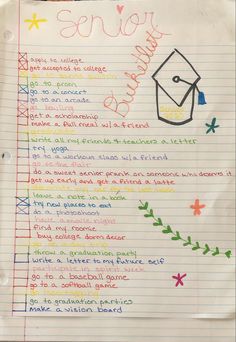 Senior
Bucketlist
apply to college
get accepted to college
go to prom
go to a concert
go to an arcade
go bowling
get a scholarship
make a full meal w/ a friend
write all my friends + teachers a letter
try yoga
go to a workout class w/ a friend
go to the fair
do a sweet senior prank on someone who deserves it
get up early and get a friend a latte
leave a note in a book
try new places to eat
do a photoshoot
have a movie night
find my roomie
buy college dorm decor
throw a graduation party
write a letter to my future self
participate in spirit week
go to a baseball game
go to a softball game
go to graduation parties
make a vision board